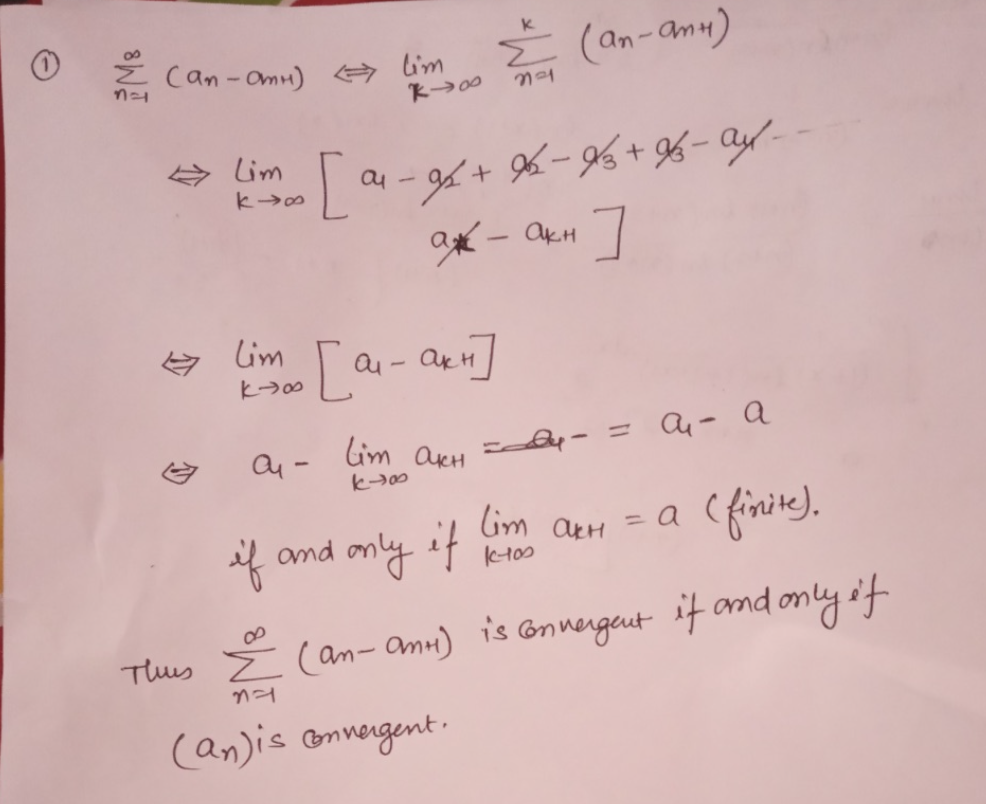 ① ∞∑n=1 (an - an+1) ⇔ lim k→∞ k∑n=1 (an - an+1)
⇔ lim k→∞ [ a1 - a2 + a2 - a3 + a3 - a4 ----
ak - ak+1 ]
⇔ lim k→∞ [ a1 - ak+1 ]
⇔ a1 - lim k→∞ ak+1 = a1 - a
if and only if lim k→∞ ak+1 = a (finite).
Thus ∞∑n=1 (an - an+1) is convergent if and only if
(an) is convergent.